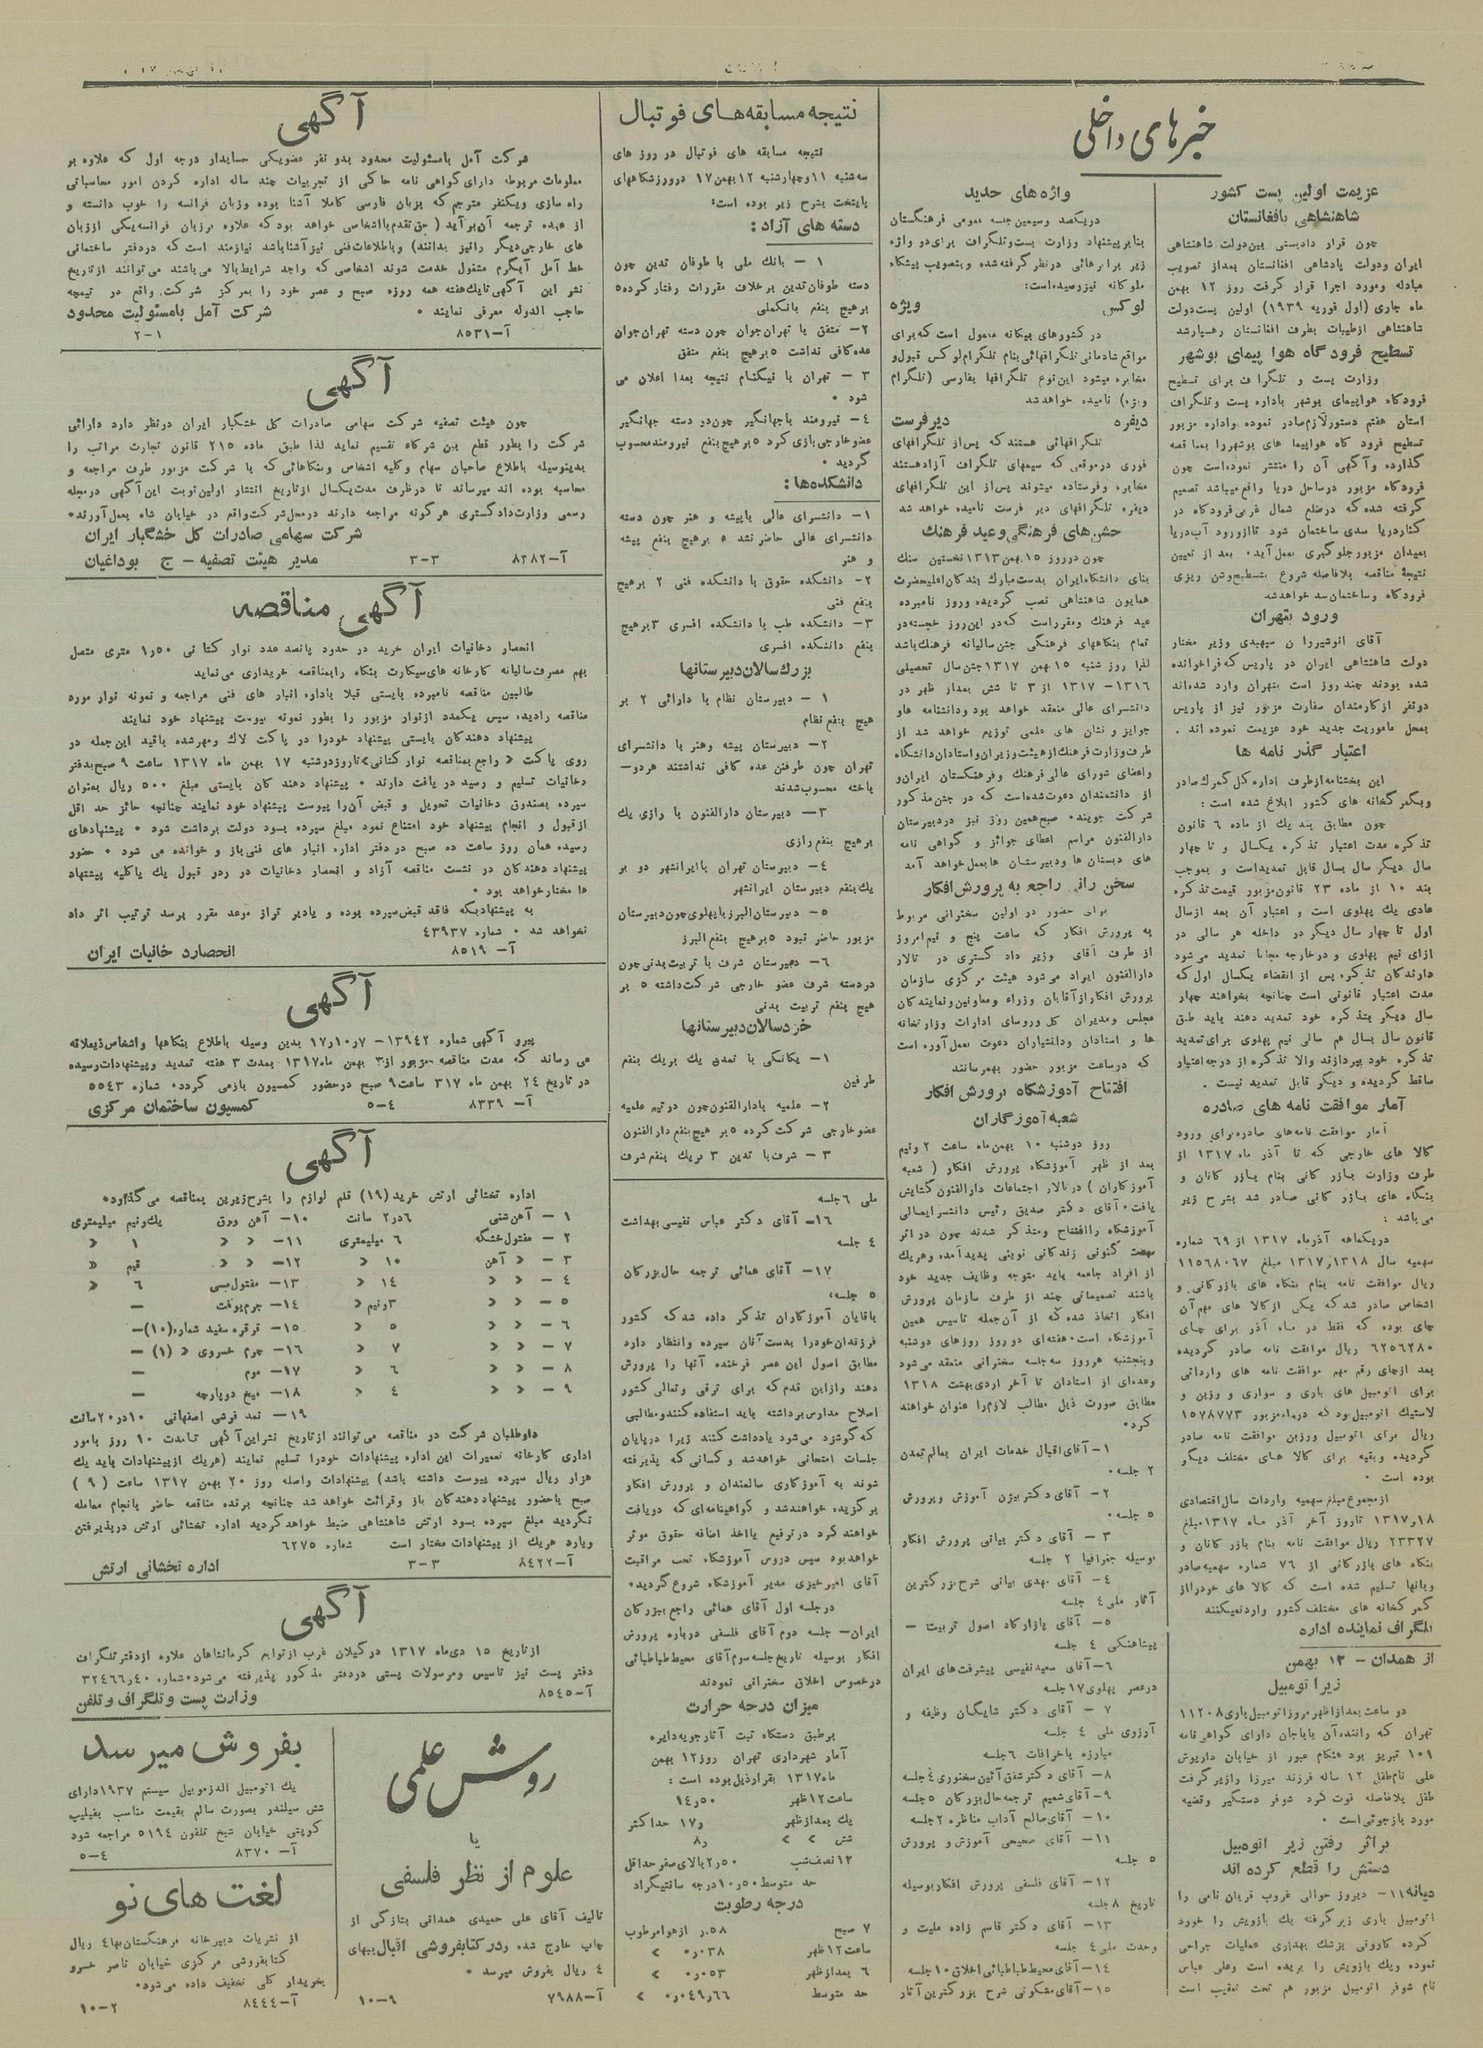 خبرهای داخلی
عزیمت اولین پست کشور
شاهنشاهی بافغانستان
چون قرار دادپستی بین دولت شاهنشاهی
ایران ودولت پادشاهی افغانستان بعداز تصویب
مبادله ومورد اجرا قرار گرفت روز ۱۲ بهمن
ماه جاری (اول فوریه ۱۹۳۹) اولین پست دولت
شاهنشاهی ازطیبات بطرف افغانستان رهسپارشد
تسطیح فرودگاه هوا پیمای بوشهر
وزارت پست و تلگراف برای تسطیح
فرودگاه هواپیمای بوشهر باداره پست وتلگراف
استان هفتم دستورلازم صادر نموده واداره مزبور
تسطیح فرود گاه هواپیما های بوشهررا بمناقصه
گذارده وآگهی آن را منتشر نموده است چون
فرودگاه مزبور درساحل دریا واقع میباشد تصمیم
گرفته شده که درضلع شمال غربی فرودگاه در
کناردریا سدی ساختمان شود تاازورود آب دریا
بمیدان مزبور جلوگیری بعمل آید. بعد از تعیین
نتیجهٔ مناقصه بلافاصله شروع بتسطیح وشن ریزی
فرودگاه وساختمان سد خواهدشد
ورود بتهران
آقای انوشیروان سپهبدی وزیر مختار
دولت شاهنشاهی ایران در پاریس که فراخوانده
شده بودند چند روز است بتهران وارد شده‌اند
دونفر ازکارمندان سفارت مزبور نیز از پاریس
بمحل ماموریت جدید خود عزیمت نموده اند .
اعتبار گذر نامه ها
این بخشنامه ازطرف اداره کل گمرک صادر
وبگمرگخانه های کشور ابلاغ شده است :
چون مطابق بند یک از ماده ۶ قانون
تذکره مدت اعتبار تذکره یکسال و تا چهار
سال دیگر سال بسال قابل تمدیداست و بموجب
بند ۱۰ از ماده ۲۳ قانون مزبور قیمت تذکره
عادی یک پهلوی است و اعتبار آن بعد ازسال
اول تا چهار سال دیگر در داخله هر سالی در
ازای نیم پهلوی و درخارجه مجانا تمدید می‌شود
دارندگان تذکره پس از انقضاء یکسال اول که
مدت اعتبار قانونی است چنانچه بخواهند چهار
سال دیگر بتذکره خود تمدید دهند باید طبق
قانون سال بسال هم سالی نیم پهلوی برای تمدید
تذکره خود بپردازند والا تذکره از درجه اعتبار
ساقط گردیده و دیگر قابل تمدید نیست .
آمار موافقت نامه های صادره
آمار موافقت نامه‌های صادره برای ورود
کالا های خارجی که تا آذر ماه ۱۳۱۷ از
طرف وزارت بازرگانی بنام بازرگانان و
بنگاه های بازرگانی صادر شد بشرح زیر
می باشد :
دریکماهه آذرماه ۱۳۱۷ از ۶۹ شماره
سهمیه سال ۱۳۱۷٫۱۳۱۸ مبلغ ۱۱۵۶۸۰۶۷
ریال موافقت نامه بنام بنگاه های بازرگانی و
اشخاص صادر شد که یکی از کالا های مهم آن
چای بوده که فقط در ماه آذر برای چای
۶۲۵۶۲۸۰ ریال موافقت نامه صادر گردیده
بعد ازچای رقم مهم موافقت نامه های وارداتی
برای اتومبیل های باری و سواری و رزین و
لاستیک اتومبیل بود که درماه مزبور ۱۵۷۸۷۷۳
ریال برای اتومبیل ورزین موافقت نامه صادر
گردیده وبقیه برای کالا های مختلف دیگر
بوده است .
از مجموع مبلغ سهمیه واردات سال اقتصادی
۱۸و۱۳۱۷ تاروز آخر آذر ماه ۱۳۱۷ مبلغ
۲۳۳۲۷ ریال موافقت نامه بنام بازرگانان و
بنگاه های بازرگانی از ۷۶ شماره سهمیه صادر
وبانها تسلیم شده است که کالا های خودرااز
گمرکخانه های مختلف کشور واردنمیکنند
تلگراف نماینده اداره
از همدان – ۱۲ بهمن
زیر اتومبیل
دو ساعت بعدازظهر مروز اتومبیل باری ۱۱۲۰۸
تهران که راننده آن باباجان دارای گواهی نامه
۱۰۱ تبریز بود هنگام عبور از خیابان داریوش
علی نام طفل ۱۲ ساله فرزند میرزا رازیرگرفت
طفل بلافاصله فوت کرد شوفر دستگیر وقضیه
مورد بازجوئی است .
براثر رفتن زیر اتومبیل
دستش را قطع کرده اند
دیانه ۱۱– دیروز حوالی غروب قربان نامی را
اتومبیل باری زیرگرفته یك بازویش را خورد
کرده کارونی پزشك بهداری عملیات جراحی
نموده ویك بازویش را بریده است وعلی عباس
نام شوفر اتومبیل مزبور هم تحت تعقیب است
واژه های جدید
دریکصد وسیمین جلسه عمومی فرهنگستان
بنابر پیشنهاد وزارت پست وتلگراف برای دو واژه
زیر برابرهائی درنظرگرفته شده و بتصویب پیشگاه
ملوکانه نیزرسیده است:
لوکس ویژه
در کشورهای بیگانه معمول است که برای
مواقع شادمانی تلگرافهائی بنام تلگرام لوکس قبول و
مخابره میشود این نوع تلگرافها بفارسی (تلگرام
ویژه) نامیده خواهدشد
دیفره دیرفرست
تلگرافهائی هستند که پس از تلگرافهای
فوری درموقعی که سیمهای تلگراف آزادهستند
مخابره وفرستاده میشوند پس از این تلگرافهای
دیفره تلگرافهای دیر فرست نامیده خواهد شد
جشن‌های فرهنگی وعید فرهنگ
چون درروز ۱۵ بهمن ۱۳۱۳ نخستین سنگ
بنای دانشگاه ایران بدست مبارک بندگان اعلیحضرت
همایون شاهنشاهی نصب گردیده وروز نامبرده
عید فرهنگ ومقرراست که در این روز خجسته در
تمام بنگاههای فرهنگی جشن سالیانه فرهنگ باشد
لذا روز شنبه ۱۵ بهمن ۱۳۱۷ جشن سال تحصیلی
۱۳۱۶– ۱۳۱۷ از ۳ تا شش بعداز ظهر در
دانشسرای عالی منعقد خواهد بود ودانشنامه هاو
جوایز و نشان های علمی توزیع خواهد شد از
طرف وزارت فرهنگ از هیئت وزیران واستادان دانشگاه
واعضای شورای عالی فرهنگ وفرهنگستان ایران و
از دانشمندان دعوت شده است که در جشن مذکور
شرکت جویند. صبح همین روز نیز دردبیرستان
دارالفنون مراسم اعطای جوائز و گواهی نامه
های دبستان ها ودبیرستان ها بعمل خواهد آمد
سخن رانی راجع به پرورش افکار
برای حضور در اولین سخنرانی مربوط
به پرورش افکار که ساعت پنج و نیم امروز
از طرف آقای وزیر دادگستری در تالار
دارالفنون ایراد می‌شود هیئت مرکزی سازمان
پرورش افکار از آقایان وزراء ومعاونین و نمایندگان
مجلس ومدیران کل وروسای ادارات وزارتخانه
ها و استادان ودانشیاران دعوت بعمل آورده است
که درساعت مزبور حضور بهمرسانند
افتتاح آموزشگاه پرورش افکار
شعبه آموزگاران
روز دوشنبه ۱۰ بهمن ماه ساعت ۲ ونیم
بعد از ظهر آموزشگاه پرورش افکار ( شعبه
آموزگاران ) درتالار اجتماعات دارالفنون گشایش
یافت. آقای دکتر صدیق رئیس دانشسرایعالی
آموزشگاه راافتتاح ومتذکر شدند چون در اثر
نهضت کنونی زندگانی نوینی پدید آمده وهریك
از افراد جامعه باید متوجه وظایف جدید خود
باشند تصمیماتی چند از طرف سازمان پرورش
افکار اتخاذ شده که از آن جمله تاسیس همین
آموزشگاه است. هفته‌ای دو روز روزهای دوشنبه
وپنجشنبه هرروز سه جلسه سخنرانی منعقد می‌شود
وعده‌ای از استادان تا آخر اردی بهشت ۱۳۱۸
مطابق صورت ذیل مطالب لازم را عنوان خواهند
کرد.
۱– آقای اقبال خدمات ایران بعالم تمدن
۲ جلسه.
۲– آقای دکتر بیژن آموزش و پرورش
۵ جلسه.
۳ – آقای دکتر بیانی پرورش افکار
بوسیله جغرافیا ۲ جلسه
۴– آقای مهدی بیانی شرح بزرگترین
آثار ملی ۴ جلسه
۵– آقای بازارگاد اصول تربیت –
پیشاهنگی ۴ جلسه
۶– آقای سعید نفیسی پیشرفت‌های ایران
درعصر پهلوی ۱۷ جلسه
۷ – آقای دکتر شایگان وظیفه و
آرزوی ملی ۴ جلسه
مبارزه باخرافات ۶ جلسه
۸– آقای دکتر شفق آئین سخنوری ۴ جلسه
۹– آقای شمیم ترجمه حال بزرگان ۵ جلسه
۱۰– آقای صالح آداب مناظره ۲ جلسه
۱۱– آقای صحیحی آموزش و پرورش
۵ جلسه
۱۲– آقای فلسفی پرورش افکار بوسیله
تاریخ ۸ جلسه
۱۳– آقای دکتر قاسم زاده ملیت و
وحدت ملی ۴ جلسه
۱۴– آقای محیط طباطبائی اخلاق ۱۰ جلسه
۱۵– آقای مشکوتی شرح بزرگترین آثار
نتیجه مسابقه‌های فوتبال
نتیجه مسابقه های فوتبال در روز های
سه‌شنبه ۱۱ وچهارشنبه ۱۲ بهمن ۱۷ درورزشگاههای
پایتخت بشرح زیر بوده است:
دسته های آزاد :
۱ – بانك ملی با طوفان تدین چون
دسته طوفان تدین برخلاف مقررات رفتارکرده ۵
برهیچ بنفع بانکملی
۲– متفق با تهران جوان چون دسته تهران جوان
عده کافی نداشت ۵ برهیچ بنفع متفق
۳ – تهران با نیکنام نتیجه بعدا اعلان می
شود .
۴– نیرومند باجهانگیر چون در دسته جهانگیر
عضوخارجی بازی کرد ۵ برهیچ بنفع نیرومند محسوب
گردید .
دانشکده‌ها :
۱– دانشسرای عالی باپیشه و هنر چون دسته
دانشسرای عالی حاضر نشد ۵ برهیچ بنفع پیشه
و هنر
۲– دانشکده حقوق با دانشکده فنی ۲ برهیچ
بنفع فنی
۳– دانشکده طب با دانشکده افسری ۳ برهیچ
بنفع دانشکده افسری
بزرگ سالان دبیرستانها
۱ – دبیرستان نظام با دارائی ۲ بر
هیچ بنفع نظام
۲– دبیرستان پیشه وهنر با دانشسرای
تهران چون طرفین عده کافی نداشتند هردو–
باخته محسوب شدند
۳– دبیرستان دارالفنون با رازی یك
برهیچ بنفع رازی
۴– دبیرستان تهران باایرانشهر دو بر
یك بنفع دبیرستان ایرانشهر
۵– دبیرستان البرز با پهلوی چون دبیرستان
مزبور حاضر نبود ۵ برهیچ بنفع البرز
۶– دبیرستان شرف با تربیت بدنی چون
دردسته شرف عضو خارجی شرکت داشته ۵ بر
هیچ بنفع تربیت بدنی
خردسالان دبیرستانها
۱– یگانگی با تمدن یك بریك بنفع
طرفین
۲– علمیه بادارالفنون چون درتیم علمیه
عضو خارجی شرکت کرده ۵ بر هیچ بنفع دارالفنون
۳ – شرف با تدین ۳ بریك بنفع شرف
ملی ۶ جلسه
۱۶– آقای دکتر عباس نفیسی بهداشت
۴ جلسه
۱۷– آقای همائی ترجمه حال بزرگان
۵ جلسه،
باقایان آموزگاران تذکر داده شد که کشور
فرزندان خودرا بدست آنان سپرده وانتظار دارد
مطابق اصول این عصر فرخنده آنها را پرورش
دهند وازاین قدم که برای ترقی وتعالی کشور
اصلاح مدارس برداشته باید استفاده کنند ومطالبی
که گوشزد می‌شود یادداشت کنند زیرا درپایان
جلسات امتحانی خواهدشد و کسانی که پذیرفته
شوند به آموزگاری سالمندان و پرورش افکار
برگزیده خواهندشد و گواهینامه‌ای که دریافت
خواهند کرد درترفیع یااخذ اضافه حقوق موثر
خواهدبود سپس دروس آموزشگاه تحت مراقبت
آقای امیرخیزی مدیر آموزشگاه شروع گردید.
درجلسه اول آقای همائی راجع ببزرگان
ایران– جلسه دوم آقای فلسفی درباره پرورش
افکار بوسیله تاریخ جلسه سوم آقای محیط طباطبائی
درخصوص اخلاق سخنرانی نمودند
میزان درجه حرارت
برطبق دستگاه ثبت آثارجویه دایره
آمار شهرداری تهران روز ۱۲ بهمن
ماه ۱۳۱۷ بقرارذیل بوده است :
ساعت ۱۲ ظهر ۱۴٫۵۰
یك بعدازظهر ۱۷٫ حداکثر
شش » » ۸٫
۱۲ نصف شب ۲٫۵۰ بالای صفر حداقل
حد متوسط ۱۰٫۵۰ درجه سانتیگراد
درجه رطوبت
۷ صبح ۰٫۵۸ از هوامرطوب
ساعت ۱۲ ظهر ۰٫۰۳۸ »
۶ بعدازظهر ۰٫۰۵۳ »
حد متوسط ۰٫۰۴۹٫۶۶ »
آگهی
شرکت آمل بامسئولیت محدود بدو نفر عضویکی حسابدار درجه اول که علاوه بر
معلومات مربوطه دارای گواهی نامه حاکی از تجربیات چند ساله اداره کردن امور محاسباتی
راه سازی ویکنفر مترجم که بزبان فارسی کاملا آشنا بوده وزبان فرانسه را خوب دانسته و
از عهده ترجمه آن برآید (حق تقدم بااشخاصی خواهد بود که علاوه برزبان فرانسه یکی اززبان
های خارجی دیگر رانیز بدانند) وباطلاعات فنی نیز آشنا باشد نیازمند است که دردفتر ساختمانی
خط آمل آبگرم مشغول خدمت شوند اشخاصی که واجد شرایط بالا می‌باشند می‌توانند ازتاریخ
نشر این آگهی تایك هفته همه روزه صبح و عصر خود را بمرکز شرکت واقع در تیمچه
حاجب الدوله معرفی نمایند . شرکت آمل بامسئولیت محدود
آ– ۸۵۳۱ ۱–۲
آگهی
چون هیئت تصفیه شرکت سهامی صادرات کل خشگبار ایران درنظر دارد دارائی
شرکت را بطور قطع بین شرکاء تقسیم نماید لذا طبق ماده ۲۱۵ قانون تجارت مراتب را
بدینوسیله باطلاع صاحبان سهام وکلیه اشخاص وبنگاهائی که با شرکت مزبور طرف مراجعه و
محاسبه بوده اند میرساند تا درظرف مدت یکسال ازتاریخ انتشار اولین نوبت این آگهی درمجله
رسمی وزارت دادگستری هرگونه مراجعه دارند درمحل شرکت واقع در خیابان شاه بعمل آورند.
شرکت سهامی صادرات کل خشگبار ایران
آ–۸۳۸۲ ۳–۳ مدیر هیئت تصفیه – ج بوداغیان
آگهی مناقصه
انحصار دخانیات ایران خرید در حدود پانصد عدد نوار کتانی ۱٫۵۰ متری متصل
بهم مصرف سالیانه کارخانه های سیگارت بنگاه رابمناقصه خریداری می‌نماید
طالبین مناقصه نامبرده بایستی قبلا باداره انبار های فنی مراجعه و نمونه نوار مورد
مناقصه رادیده سپس یکعدد ازنوار مزبور را بطور نمونه پیوست پیشنهاد خود نمایند
پیشنهاد دهندگان بایستی پیشنهاد خودرا در پاکت لاك ومهرشده باقید این جمله در
روی پاکت « راجع بمناقصه نوار کتانی» تاروز دوشنبه ۱۷ بهمن ماه ۱۳۱۷ ساعت ۹ صبح بدفتر
دخانیات تسلیم و رسید دریافت دارند . پیشنهاد دهندگان بایستی مبلغ ۵۰۰ ریال بعنوان
سپرده بصندوق دخانیات تحویل و قبض آن را پیوست پیشنهاد خود نمایند چنانچه حائز حد اقل
ازقبول و انجام پیشنهاد خود امتناع نمود مبلغ سپرده بسود دولت برداشت شود . پیشنهادهای
رسیده همان روز ساعت ده صبح در دفتر اداره انبار های فنی باز و خوانده می شود . حضور
پیشنهاد دهندگان در نشست مناقصه آزاد و انحصار دخانیات در ردو قبول یك یاکلیه پیشنهاد
ها مختارخواهد بود .
به پیشنهادیکه فاقد قبض سپرده بوده و یادیر تراز موعد مقرر برسد ترتیب اثر داده
نخواهد شد . شماره ۴۳۹۳۷
آ– ۸۵۱۹ انحصار دخانیات ایران
آگهی
پیرو آگهی شماره ۱۳۹۴۲– ۱۷٫۱۰٫۷ بدین وسیله باطلاع بنگاهها واشخاص ذیعلاقه
می رساند که مدت مناقصه مزبور از ۳ بهمن ماه ۱۳۱۷ بمدت ۳ هفته تمدید وپیشنهادات رسیده
در تاریخ ۲۴ بهمن ماه ۳۱۷ ساعت ۹ صبح درحضور کمسیون بازمی گردد. شماره ۵۵۴۳
آ– ۸۳۳۹ ۴–۵ کمسیون ساختمان مرکزی
آگهی
اداره تخشائی ارتش خرید (۱۹) قلم لوازم را بشرح زیرین بمناقصه می‌گذارد.
۱ – آهن شنی ۲٫۶ سانت ۱۰– آهن ورق یك ونیم میلیمتری
۲ – مفتول خشگه ۶ میلیمتری ۱۱– « « ۱ «
۳ – « آهن ۱۰ « ۱۲– « « نیم «
۴ – « « ۱۴ « ۱۳– مفتول مسی ۶ «
۵ – « « ۳ونیم « ۱۴– جرم یوفت –
۶ – « « ۵ « ۱۵– قرقره سفید شماره (۱۰) –
۷ – « « ۷ « ۱۶– چرم خسروی « (۱) –
۸ – « « ۶ « ۱۷– موم –
۹ – « « ۴ « ۱۸– میخ دوپارچه –
۱۹– نمد فرشی اصفهانی ۱۰ در ۲۰ سانت
داوطلبان شرکت در مناقصه می‌توانند ازتاریخ نشر این آگهی تامدت ۱۰ روز بامور
اداری کارخانه تعمیرات این اداره پیشنهادات خودرا تسلیم نمایند (هریك ازپیشنهادات باید یك
هزار ریال سپرده پیوست داشته باشد) پیشنهادات واصله روز ۲۰ بهمن ۱۳۱۷ ساعت ( ۹ )
صبح باحضور پیشنهاد دهندگان باز وقرائت خواهد شد چنانچه برنده مناقصه حاضر بانجام معامله
نگردید مبلغ سپرده بسود ارتش شاهنشاهی ضبط خواهدگردید اداره تخشائی ارتش درپذیرفتن
ویارد هریك از پیشنهادات مختار است شماره ۶۲۷۵
آ–۸۴۲۲ ۳–۳ اداره تخشائی ارتش
آگهی
ازتاریخ ۱۵ دی‌ماه ۱۳۱۷ درگیلان غرب ازتوابع کرمانشاهان علاوه ازدفترتلگراف
دفتر پست نیز تاسیس ومرسولات پستی دردفتر مذکور پذیرفته می‌شود. شماره ۳۲۴۶۶٫۴۰
آ–۸۵۴۵ وزارت پست وتلگراف وتلفن
روش علمی
یا
علوم از نظر فلسفی
تالیف آقای علی حمیدی همدانی بتازگی از
چاپ خارج شده ودرکتابفروشی اقبال ببهای
۴ ریال بفروش میرسد .
آ–۷۹۸۸ ۹–۱۰
بفروش میرسد
یك اتومبیل الدزموبیل سیستم ۱۹۳۷ دارای
شش سیلندر بصورت سالم بقیمت مناسب بفیلیپ
کویتی خیابان شیخ تلفون ۵۱۹۴ مراجعه شود
آ– ۸۳۷۰ ۴–۵
لغت های نو
از نشریات دبیرخانه فرهنگستان بهاء ۴ ریال
کتابفروشی مرکزی خیابان ناصر خسرو
بخریدار کلی تخفیف داده می‌شود.
آ–۸۴۴۴ ۲–۱۰